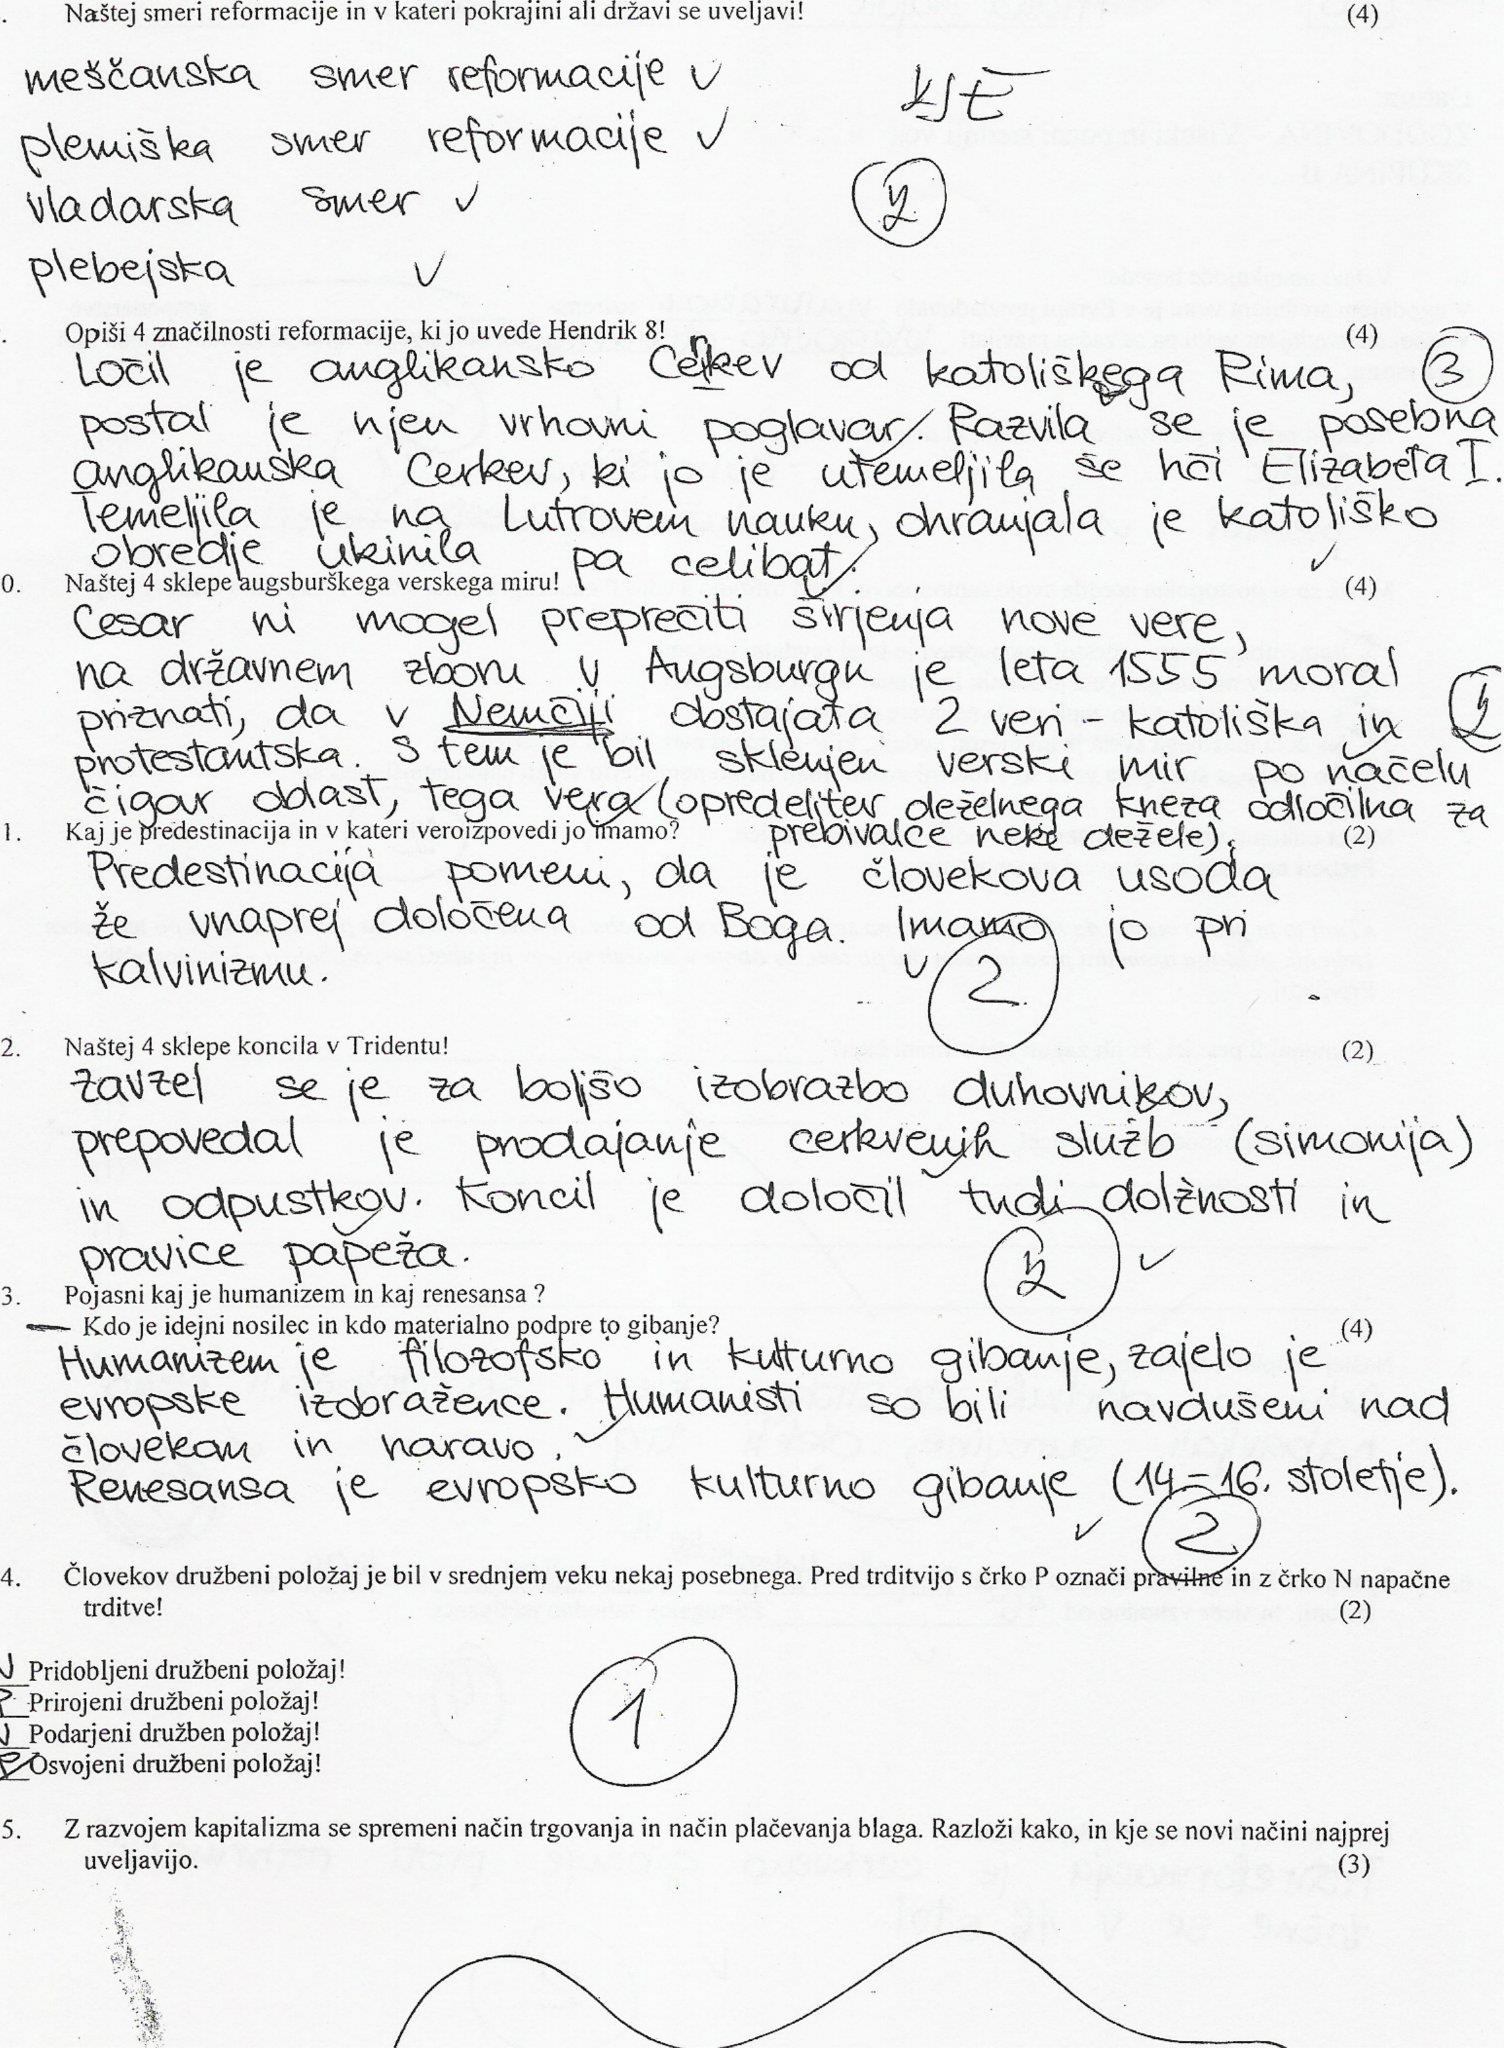 . Naštej smeri reformacije in v kateri pokrajini ali državi se uveljavi! (4)
meščanska smer reformacije ✓ KJE
plemiška smer reformacije ✓
vladarska smer ✓ 2
plebejska ✓
. Opiši 4 značilnosti reformacije, ki jo uvede Hendrik 8! (4)
Ločil je anglikansko Cerkev od katoliškega Rima, 3
postal je njen vrhovni poglavar. Razvila se je posebna
anglikanska Cerkev, ki jo je utemeljila še hči Elizabeta I.
Temeljila je na Lutrovem nauku, ohranjala je katoliško
obredje ukinila pa celibat.
0. Naštej 4 sklepe augsburškega verskega miru! (4)
Cesar ni mogel preprečiti širjenja nove vere,
na državnem zboru v Augsburgu je leta 1555 moral
priznati, da v Nemčiji obstajata 2 veri - katoliška in 2
protestantska. S tem je bil sklenjen verski mir po načelu
čigar oblast, tega vera (opredelitev deželnega kneza odločilna za
1. Kaj je predestinacija in v kateri veroizpovedi jo imamo? prebivalce neke dežele). (2)
Predestinacija pomeni, da je človekova usoda
že vnaprej določena od Boga. Imamo jo pri
kalvinizmu. ✓ 2
2. Naštej 4 sklepe koncila v Tridentu! (2)
Zavzel se je za boljšo izobrazbo duhovnikov,
prepovedal je prodajanje cerkvenih služb (simonija)
in odpustkov. Koncil je določil tudi dolžnosti in
pravice papeža. 2 ✓
3. Pojasni kaj je humanizem in kaj renesansa ?
— Kdo je idejni nosilec in kdo materialno podpre to gibanje? (4)
Humanizem je filozofsko in kulturno gibanje, zajelo je
evropske izobražence. Humanisti so bili navdušeni nad
človekom in naravo.
Renesansa je evropsko kulturno gibanje (14-16. stoletje).
✓ 2
4. Človekov družbeni položaj je bil v srednjem veku nekaj posebnega. Pred trditvijo s črko P označi pravilne in z črko N napačne
trditve! (2)
N Pridobljeni družbeni položaj!
P Prirojeni družbeni položaj!
N Podarjeni družben položaj! 1
P Osvojeni družbeni položaj!
5. Z razvojem kapitalizma se spremeni način trgovanja in način plačevanja blaga. Razloži kako, in kje se novi načini najprej
uveljavijo. (3)